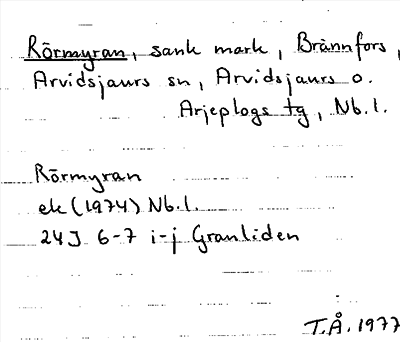 Rörmyran, sank mark, Brännfors,
Arvidsjaurs sn, Arvidsjaurs o.
Arjeplogs tg, Nb.l.
Rörmyran
ek (1974) Nb.l.
24J 6-7 i-j Granliden
T.Å. 1977